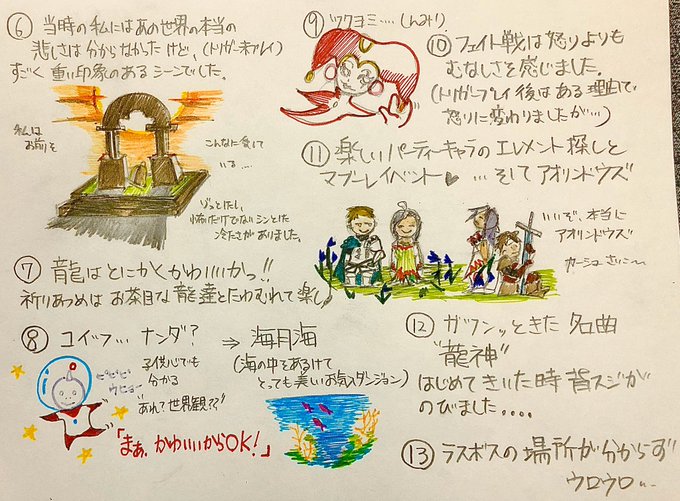 ⑥ 当時の私にはあの世界の本当の
悲しさは分からなかったけど、(トリガー未プレイ)
すごく重い印象のあるシーンでした。
私は
お前を
こんなに愛して
いる…
ゾッとたし、
怖いだけでないシンとした
冷たさがありました。
⑦ 龍はとにかくかわいいかっ!!
祈りあつめはお茶目な龍達とたわむれて楽し♪
⑧ コイツ… ナンダ?
⇒ 海月海
ピピピ
ウヒョー
子供心でも
分かる
"あれ?世界観??"
「まぁ、かわいいからOK!」
(海の中をあるけて
とっても美しいお気入ダンジョン)
⑨ ツクヨミ…(しんみり)
⑩ フェイト戦は怒りよりも
むなしさを感じました。
(トリガープレイ後はある理由で
怒りに変わりましたが…)
⑪ 楽しいパーティーキャラのエレメント探しと
マブーレイベント♥ … そしてアオリンドウズ
いいぞ、本当に
アオリンドウズ
カーシュさいこ〜
⑫ ガツンッときた名曲
"龍神"
はじめてきいた時背スジが
のびました....
⑬ ラスボスの場所が分からず
ウロウロ